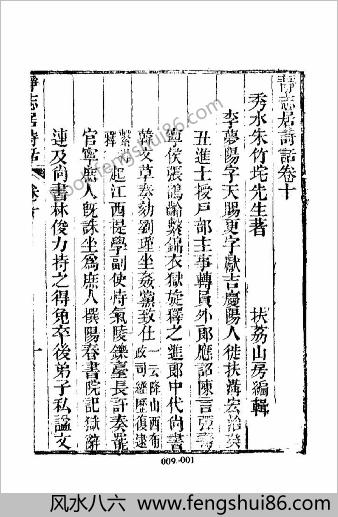 靜志居詩話卷十
秀水朱竹垞先生著 扶荔山房編輯
李夢陽字天賜更字獻吉慶陽人徙扶溝宏治癸
丑進士授戶部主事轉員外郎應詔陳言彈壽
寧侯張鶴齡繫錦衣獄旋釋之進郎中代尚書
韓文草奏劾劉瑾坐姦黨致仕一云降山西布政司經歷復逮
繫釋起江西提學副使恃氣陵轢臺長訐奏罷
官寧庶人既誅坐為庶人撰陽春書院記獄辭
連及尚書林俊力持之得免卒後弟子私諡文
靜志居詩話 卷十 一
009-001
book.fengshui86.com
风水八六 www.fengshui86.com